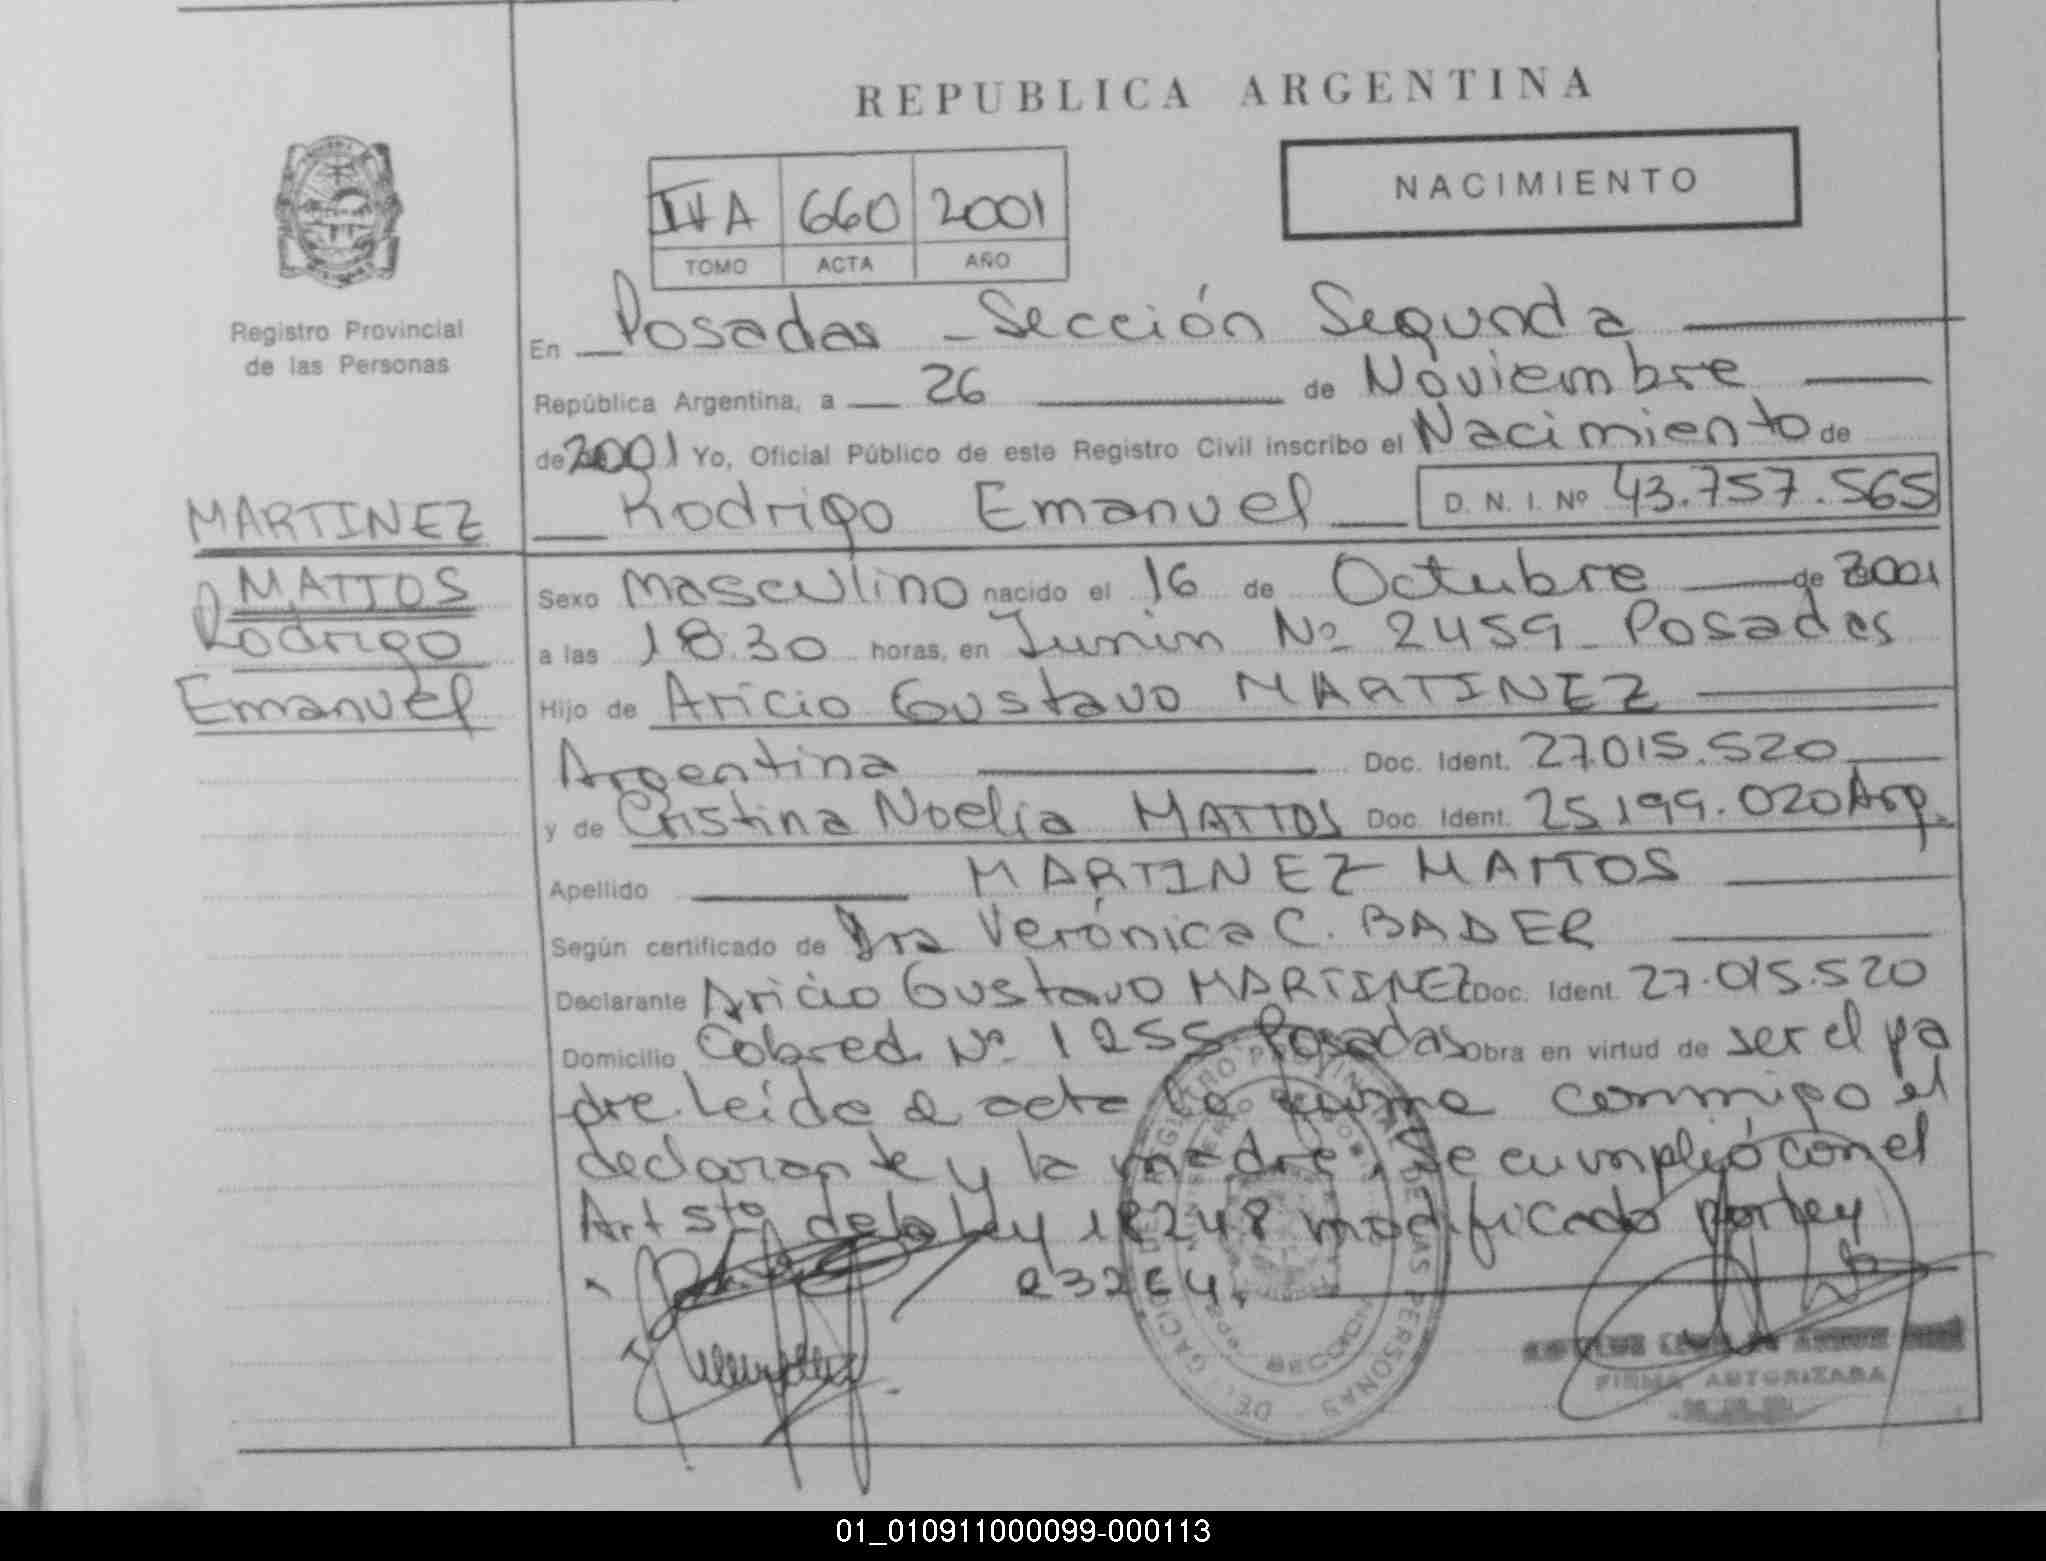 REPUBLICA ARGENTINA
NACIMIENTO
660 2001
TOMO ACTA AÑO
Registro Provincial
de las Personas
En Posadas - Sección Segunda
República Argentina, a 26 de Noviembre
de 2001 Yo, Oficial Público de este Registro Civil inscribo el Nacimiento de
Rodrigo Emanuel D. N. I. Nº 43.757.565
MARTINEZ
MATTOS
Rodrigo
Emanuel
Sexo Masculino nacido el 16 de Octubre de 2001
a las 18.30 horas, en Junin Nº 2459 - Posadas
Hijo de Aricio Gustavo MARTINEZ
Argentina Doc. Ident. 27.015.520
y de Cristina Noelia MATTOS Doc. Ident. 25.199.020 Arg.
Apellido MARTINEZ MATTOS
Según certificado de Dra Verónica C. BADER
Declarante Aricio Gustavo MARTINEZ Doc. Ident. 27.015.520
Domicilio Nº 1255 Posadas Obra en virtud de ser el pa
dre. Leída el acta la firma conmigo el
declarante y la madre, se cumplió con el
Art 5to de la Ley 18248 modificado por ley
23264.
REGISTRO PROVINCIAL DE LAS PERSONAS
FIRMA AUTORIZADA
01_010911000099-000113